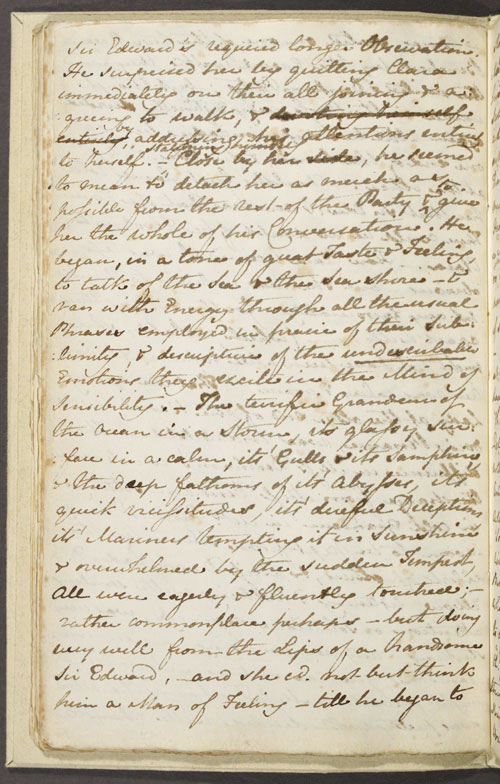 Sir Edward's required longer Observation.
He surprised her by quitting Clara
immediately on their all joining & a:
:greeing to walk, & devoting himself
entirely by addressing his attentions entirely
to herself. – Stationing himself Close by her side, he seemed
to mean to detach her as much as
possible from the rest of the Party & to give
her the whole of his Conversation. He
began, in a tone of great Taste & Feeling,
to talk of the Sea & the Sea shore – &
ran with Energy through all the usual
Phrases employed in praise of their Sub:
:limity, & descriptive of the undescribable
Emotions they excite in the Mind of
Sensibility. – The terrific Grandeur of
the Ocean in a Storm, its' glassy sur:
:face in a calm, its' Gulls & its Samphire
& the deep fathoms of its' Abysses, its'
quick vicissitudes, its' direful Deceptions,
its' Mariners tempting it in Sunshine
& overwhelmed by the sudden Tempest,
All were eagerly & fluently touched; –
rather commonplace perhaps – but doing
very well from the Lips of a Handsome
Sir Edward, – and she cd. not but think
him a Man of Feeling – till he began to